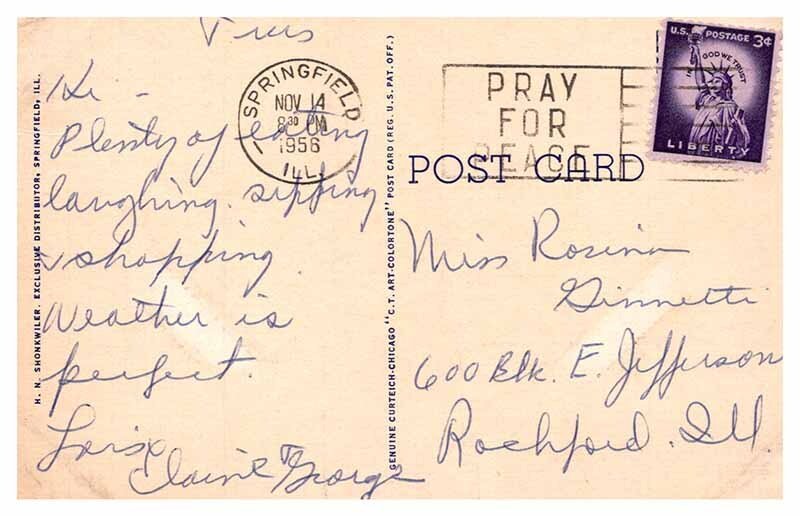 Tues
Hi -
Plenty of eating
laughing. sipping
& shopping.
Weather is
perfect.
Elaine & George
SPRINGFIELD
NOV 14
8 30 PM
1956
ILL.
PRAY
FOR
PEACE
U.S. POSTAGE 3¢
IN GOD WE TRUST
LIBERTY
POST CARD
Miss Rosina
Ginnetti
600 Blk. E. Jefferson
Rockford. Ill.
H. N. SHONKWILER. EXCLUSIVE DISTRIBUTOR, SPRINGFIELD, ILL.
GENUINE CURTEICH-CHICAGO "C.T. ART-COLORTONE" POST CARD (REG. U.S. PAT. OFF.)